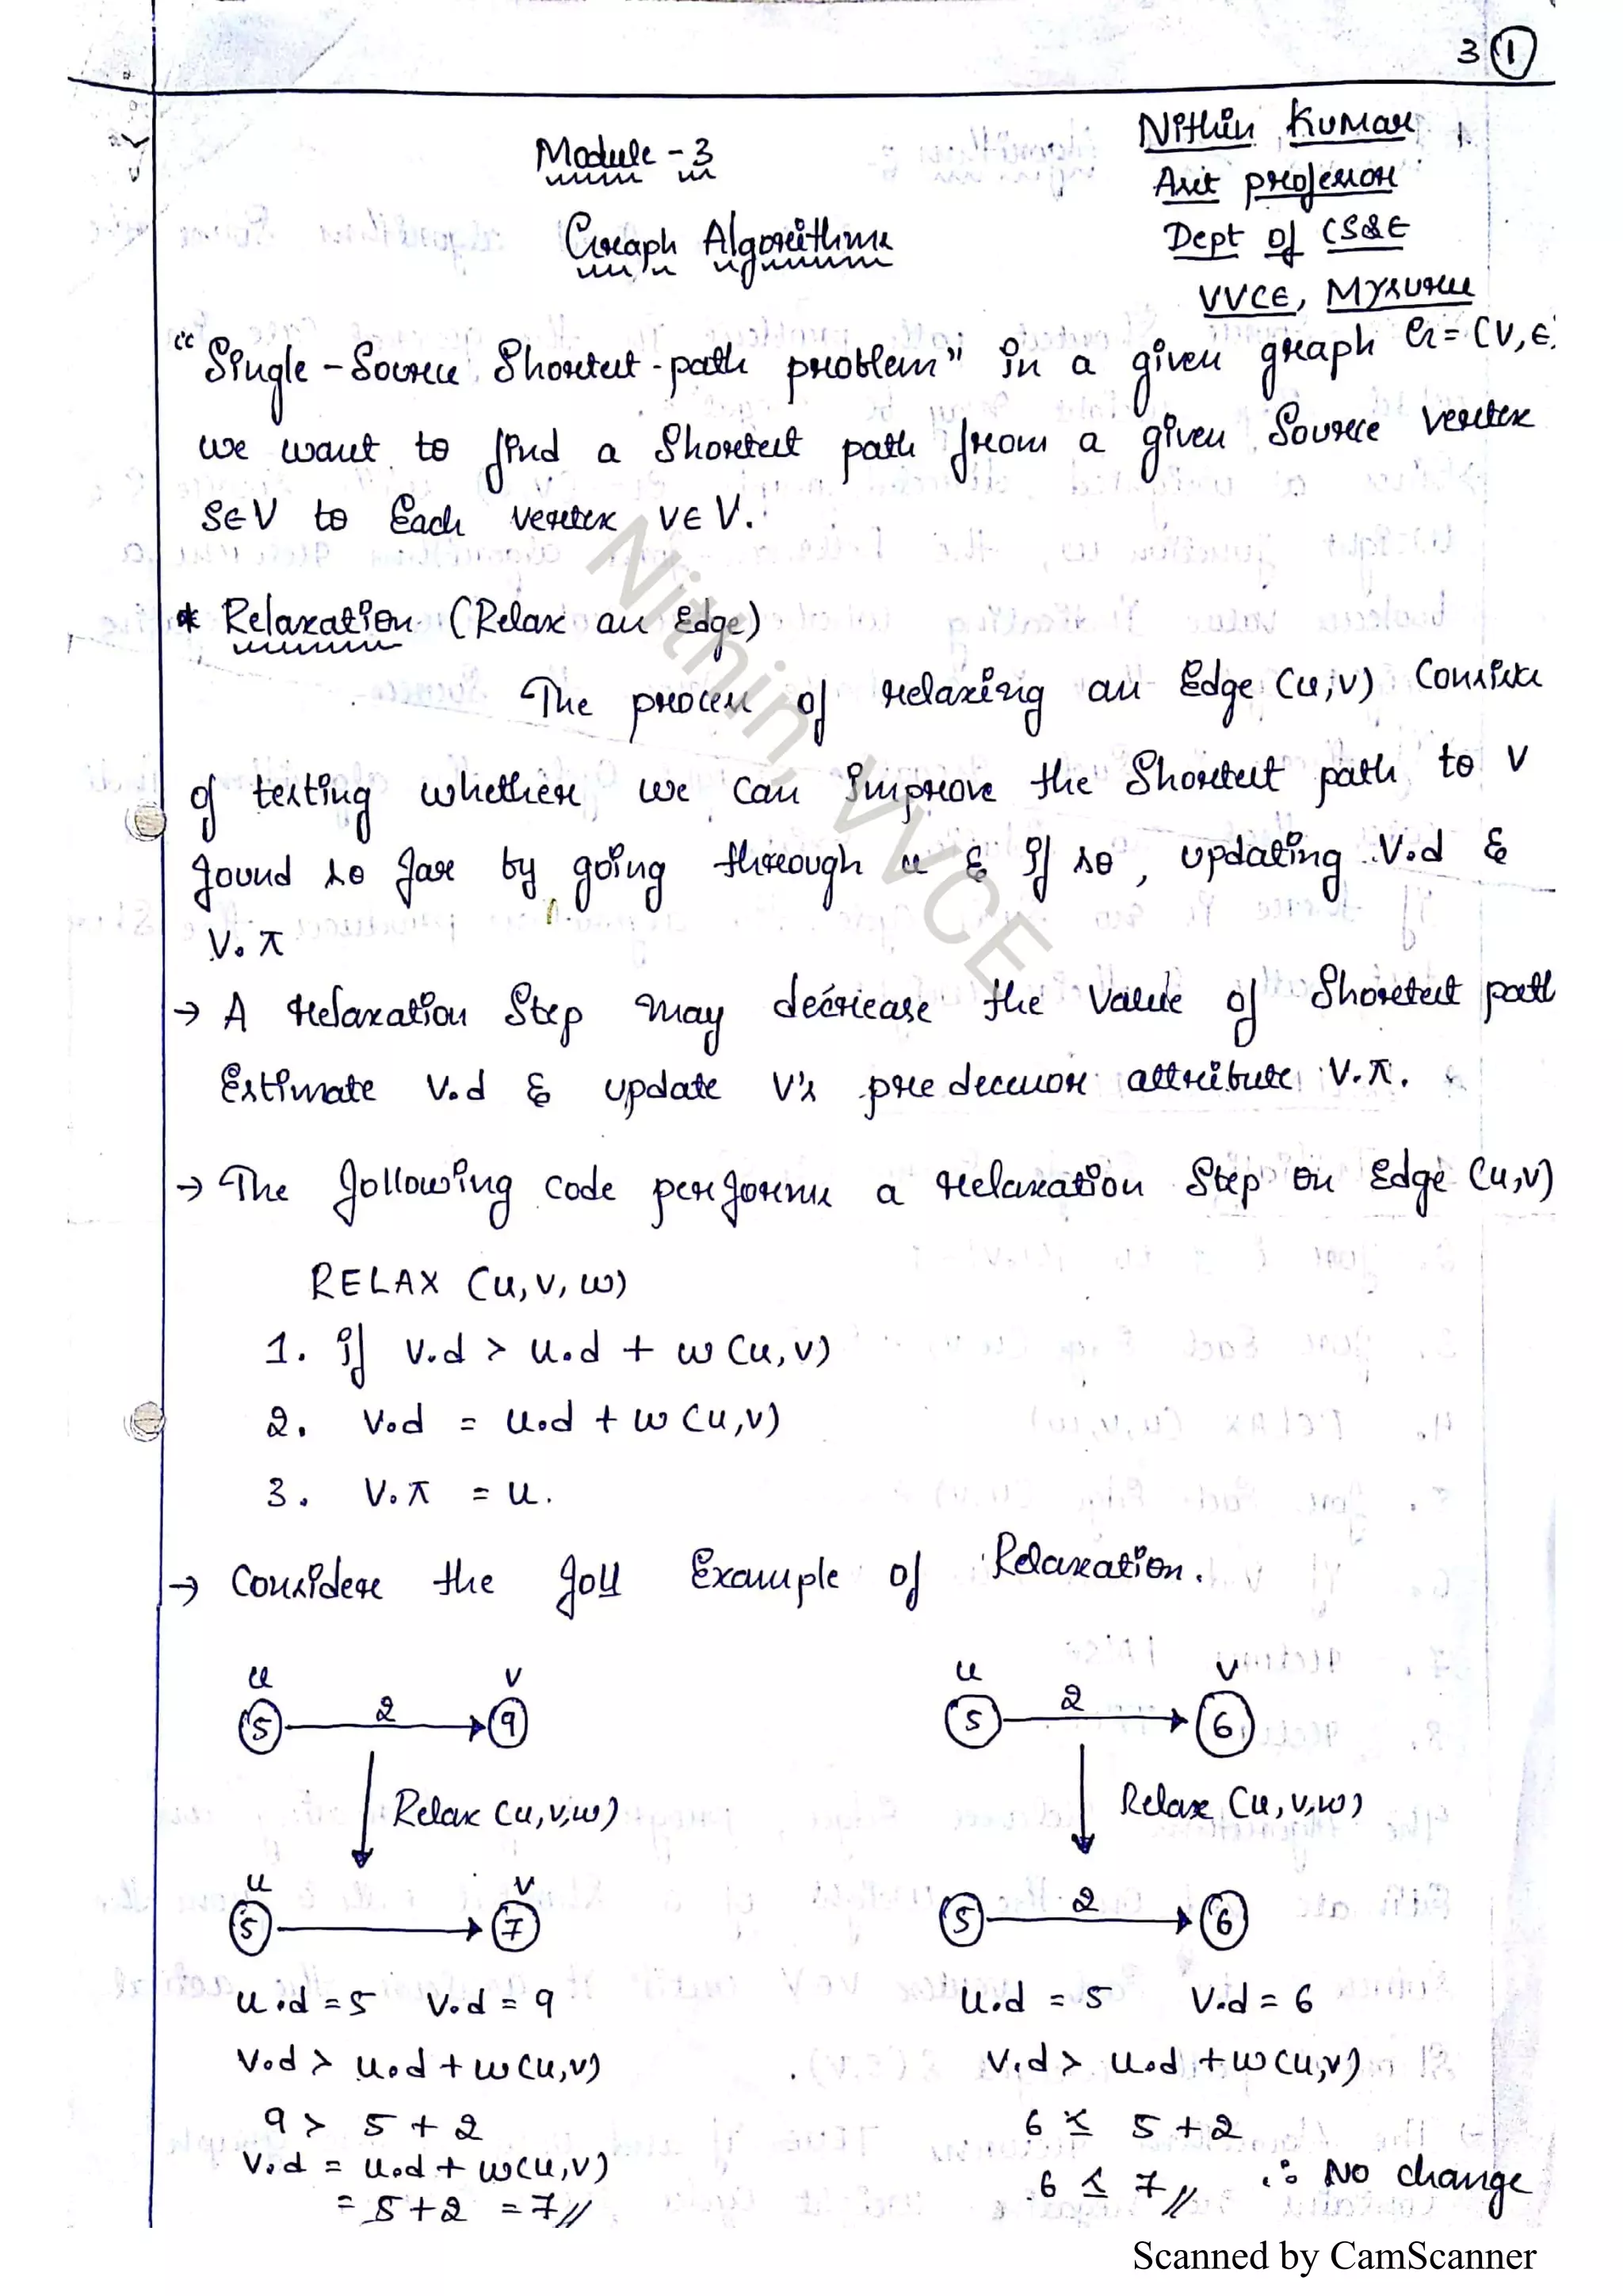 3 1
Nithin Kumar
Asst professor
Dept of CS&E
VVCE, Mysuru
Module - 3
Graph Algorithms
"Single-Source Shortest-path problem" in a given graph G = (V, E)
we want to find a Shortest path from a given Source vertex
S∈V to Each vertex V∈V.
* Relaxation (Relax an Edge)
The process of relaxing an Edge (u,v) Consists
of testing whether we can improve the Shortest path to V
found so far by going through u & if so, updating V.d &
V.π
→ A relaxation Step may decrease the value of Shortest path
Estimate V.d & update V's predecessor attribute V.π.
→ The following code performs a relaxation Step on Edge (u,v)
RELAX (u, v, w)
1. if v.d > u.d + w(u, v)
2. v.d = u.d + w(u,v)
3. v.π = u.
→ Consider the foll Example of Relaxation.
u v u v
5 2 9 5 2 6
Relax (u,v,w) Relax (u,v,w)
u v
5 7 5 2 6
u.d = 5 v.d = 9 u.d = 5 v.d = 6
v.d > u.d + w(u,v) v.d > u.d + w(u,v)
9 > 5 + 2 6 ≤ 5 + 2
v.d = u.d + w(u,v) 6 ≤ 7 // ∴ No change
= 5+2 = 7 //
Nithin, VVCE
Scanned by CamScanner